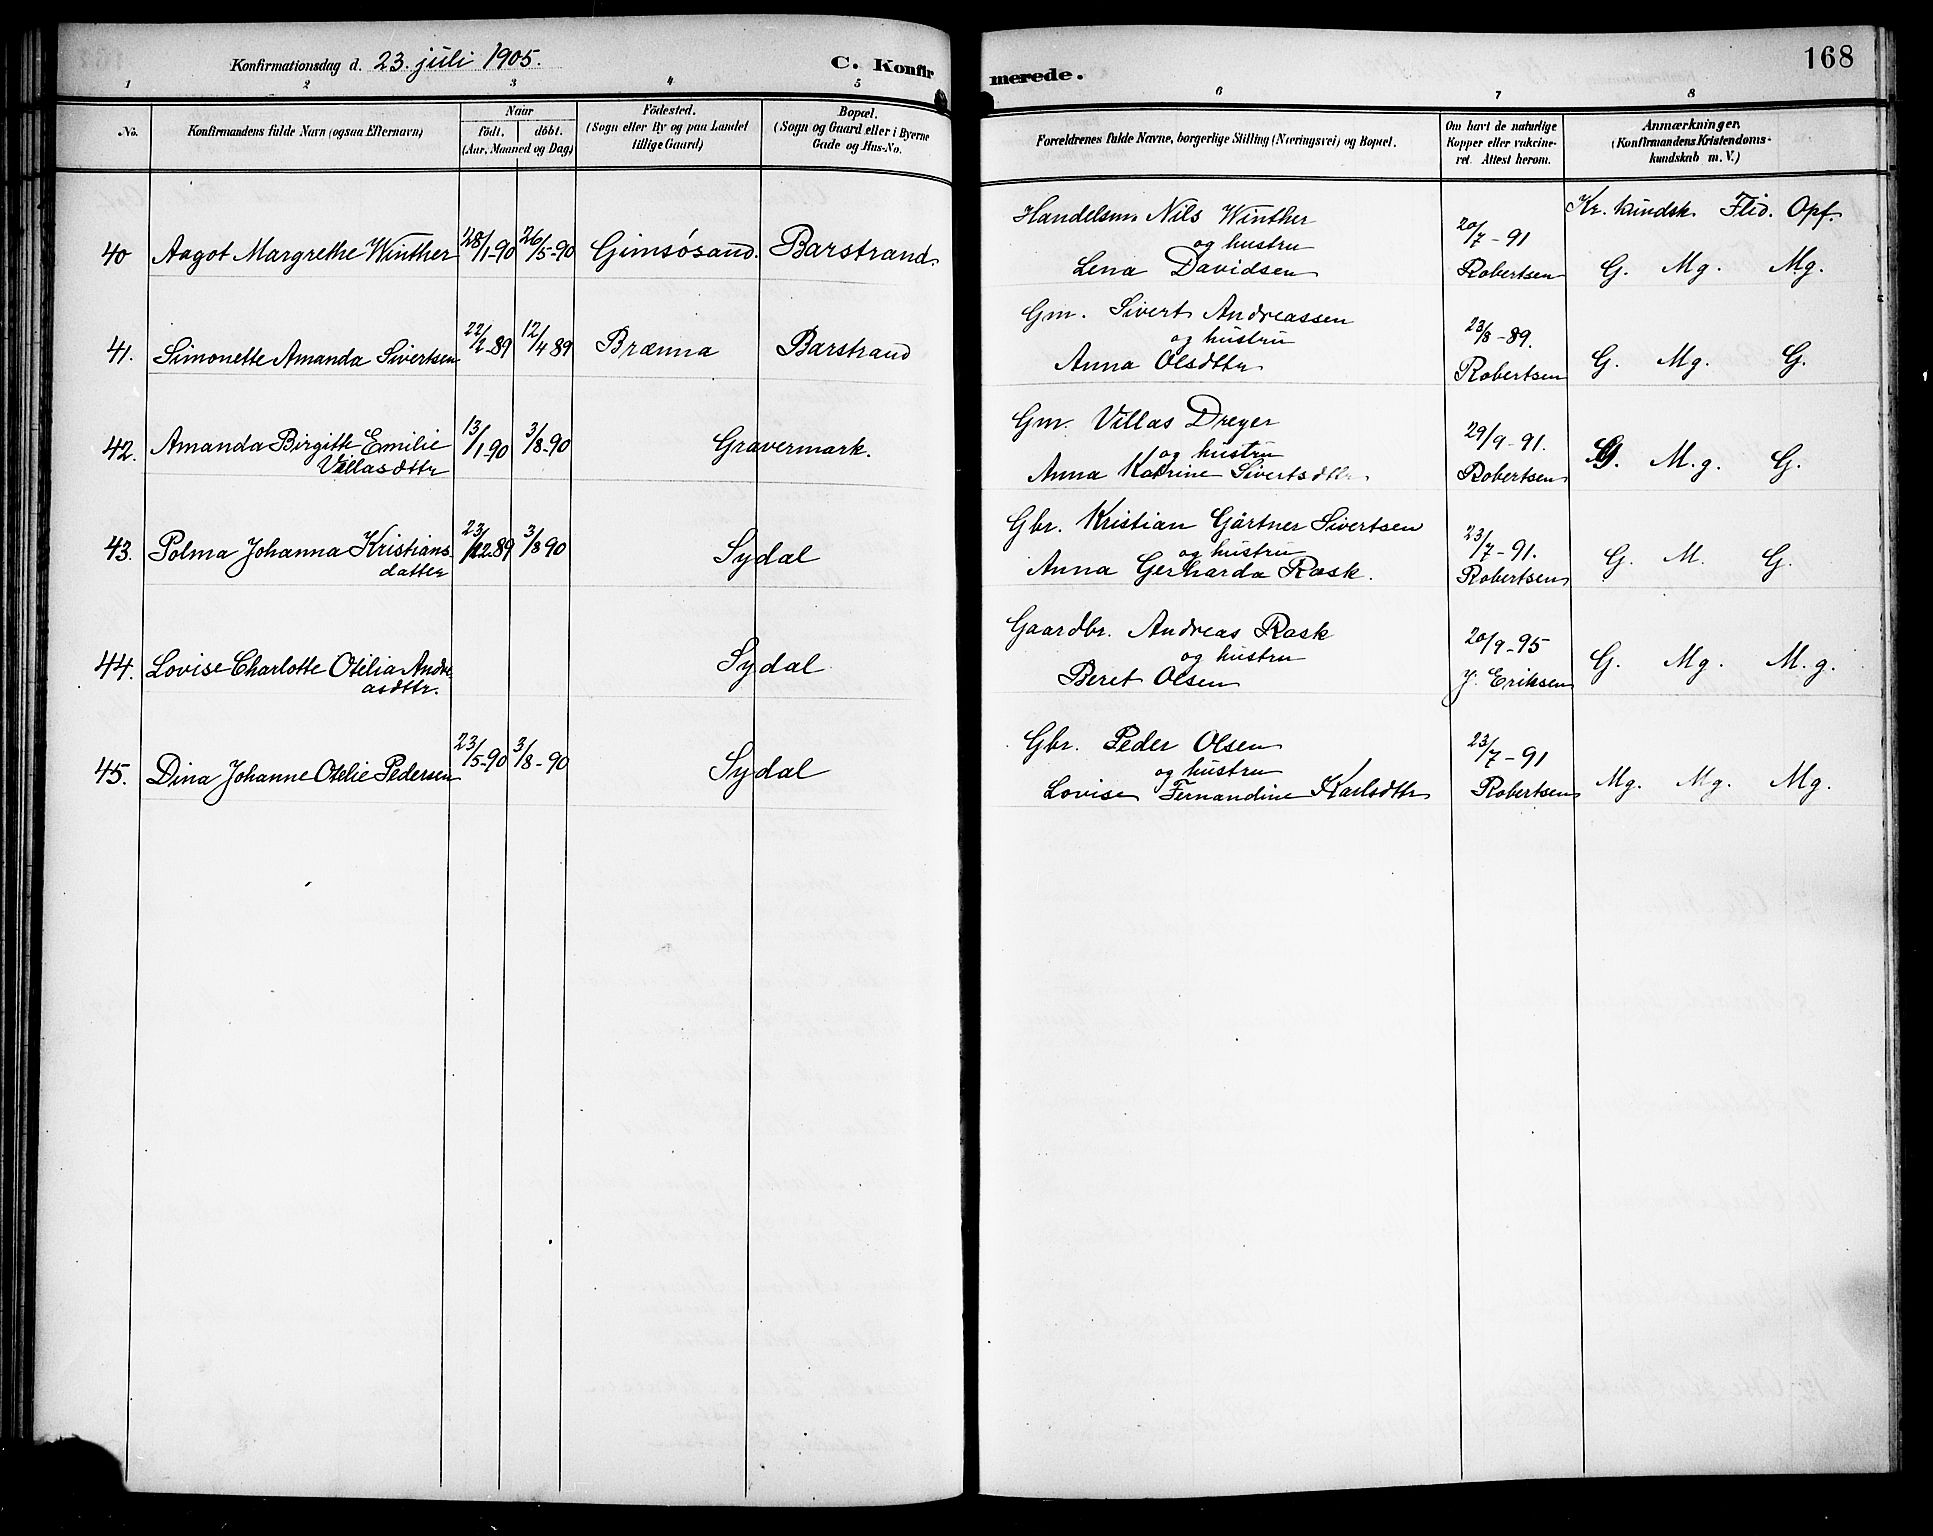 Konfirmationsdag d. 23. juli 1905.
C. Konfir
merede.
168
1 2 3 4 5 6 7 8
No.
Konfirmandens fulde Navn (ogsaa Efternavn)
Naar
født. døbt.
(Aar, Maaned og Dag)
Fødested.
(Sogn eller By og paa Landet
tillige Gaard)
Bopæl.
(Sogn og Gaard eller i Byerne
Gade og Hus-No.
Forældrenes fulde Navne, borgerlige Stilling (Næringsvei) og Bopæl.
Om havt de naturlige
Kopper eller vakcine-
ret. Attest herom.
Anmærkninger.
(Konfirmandens Kristendoms-
kundskab m. V.)
Kr. kundsk. Flid. Opf.
40 Aagot Margrethe Winther 28/1-90 26/5-90 Gimsøsand. Barstrand.
Handelsm. Nils Winther
og hustru
Lena Davidsen
20/7-91
Robertsen
G. Mg. Mg.
41. Simonette Amanda Sivertsen 22/2-89 12/4 89 Brænna Barstrand
Gm. Sivert Andreassen
og hustru
Anna Olsdttr
23/8-89.
Robertsen
G. Mg. G.
42. Amanda Birgitte Emilie
Villasdttr
13/1-90 3/8-90 Gravermark.
Gm. Villas Dreyer
og hustru
Anna Katrine Sivertsdttr.
29/9-91.
Robertsen
G. M.g. G.
43. Polma Johanna Kristians
datter
23/12-89 3/8 90 Sydal
Gbr. Kristian Gårtner Sivertsen
og hustru
Anna Gerharda Rask.
23/7-91.
Robertsen
G. M. G.
44. Lovise Charlotte Otelia Andre
asdttr.
Sydal
Gaardbr. Andreas Rask
og hustru
Beret Olsen
20/9-95
J. Eriksen
G. Mg. M.g.
45. Dina Johanne Otelie Pedersen 23/5-90 3/8-90 Sydal
Gbr. Peder Olsen
og hustru
Lovise Fernandine Karlsdttr
23/7-91
Robertsen
Mg. Mg. Mg.